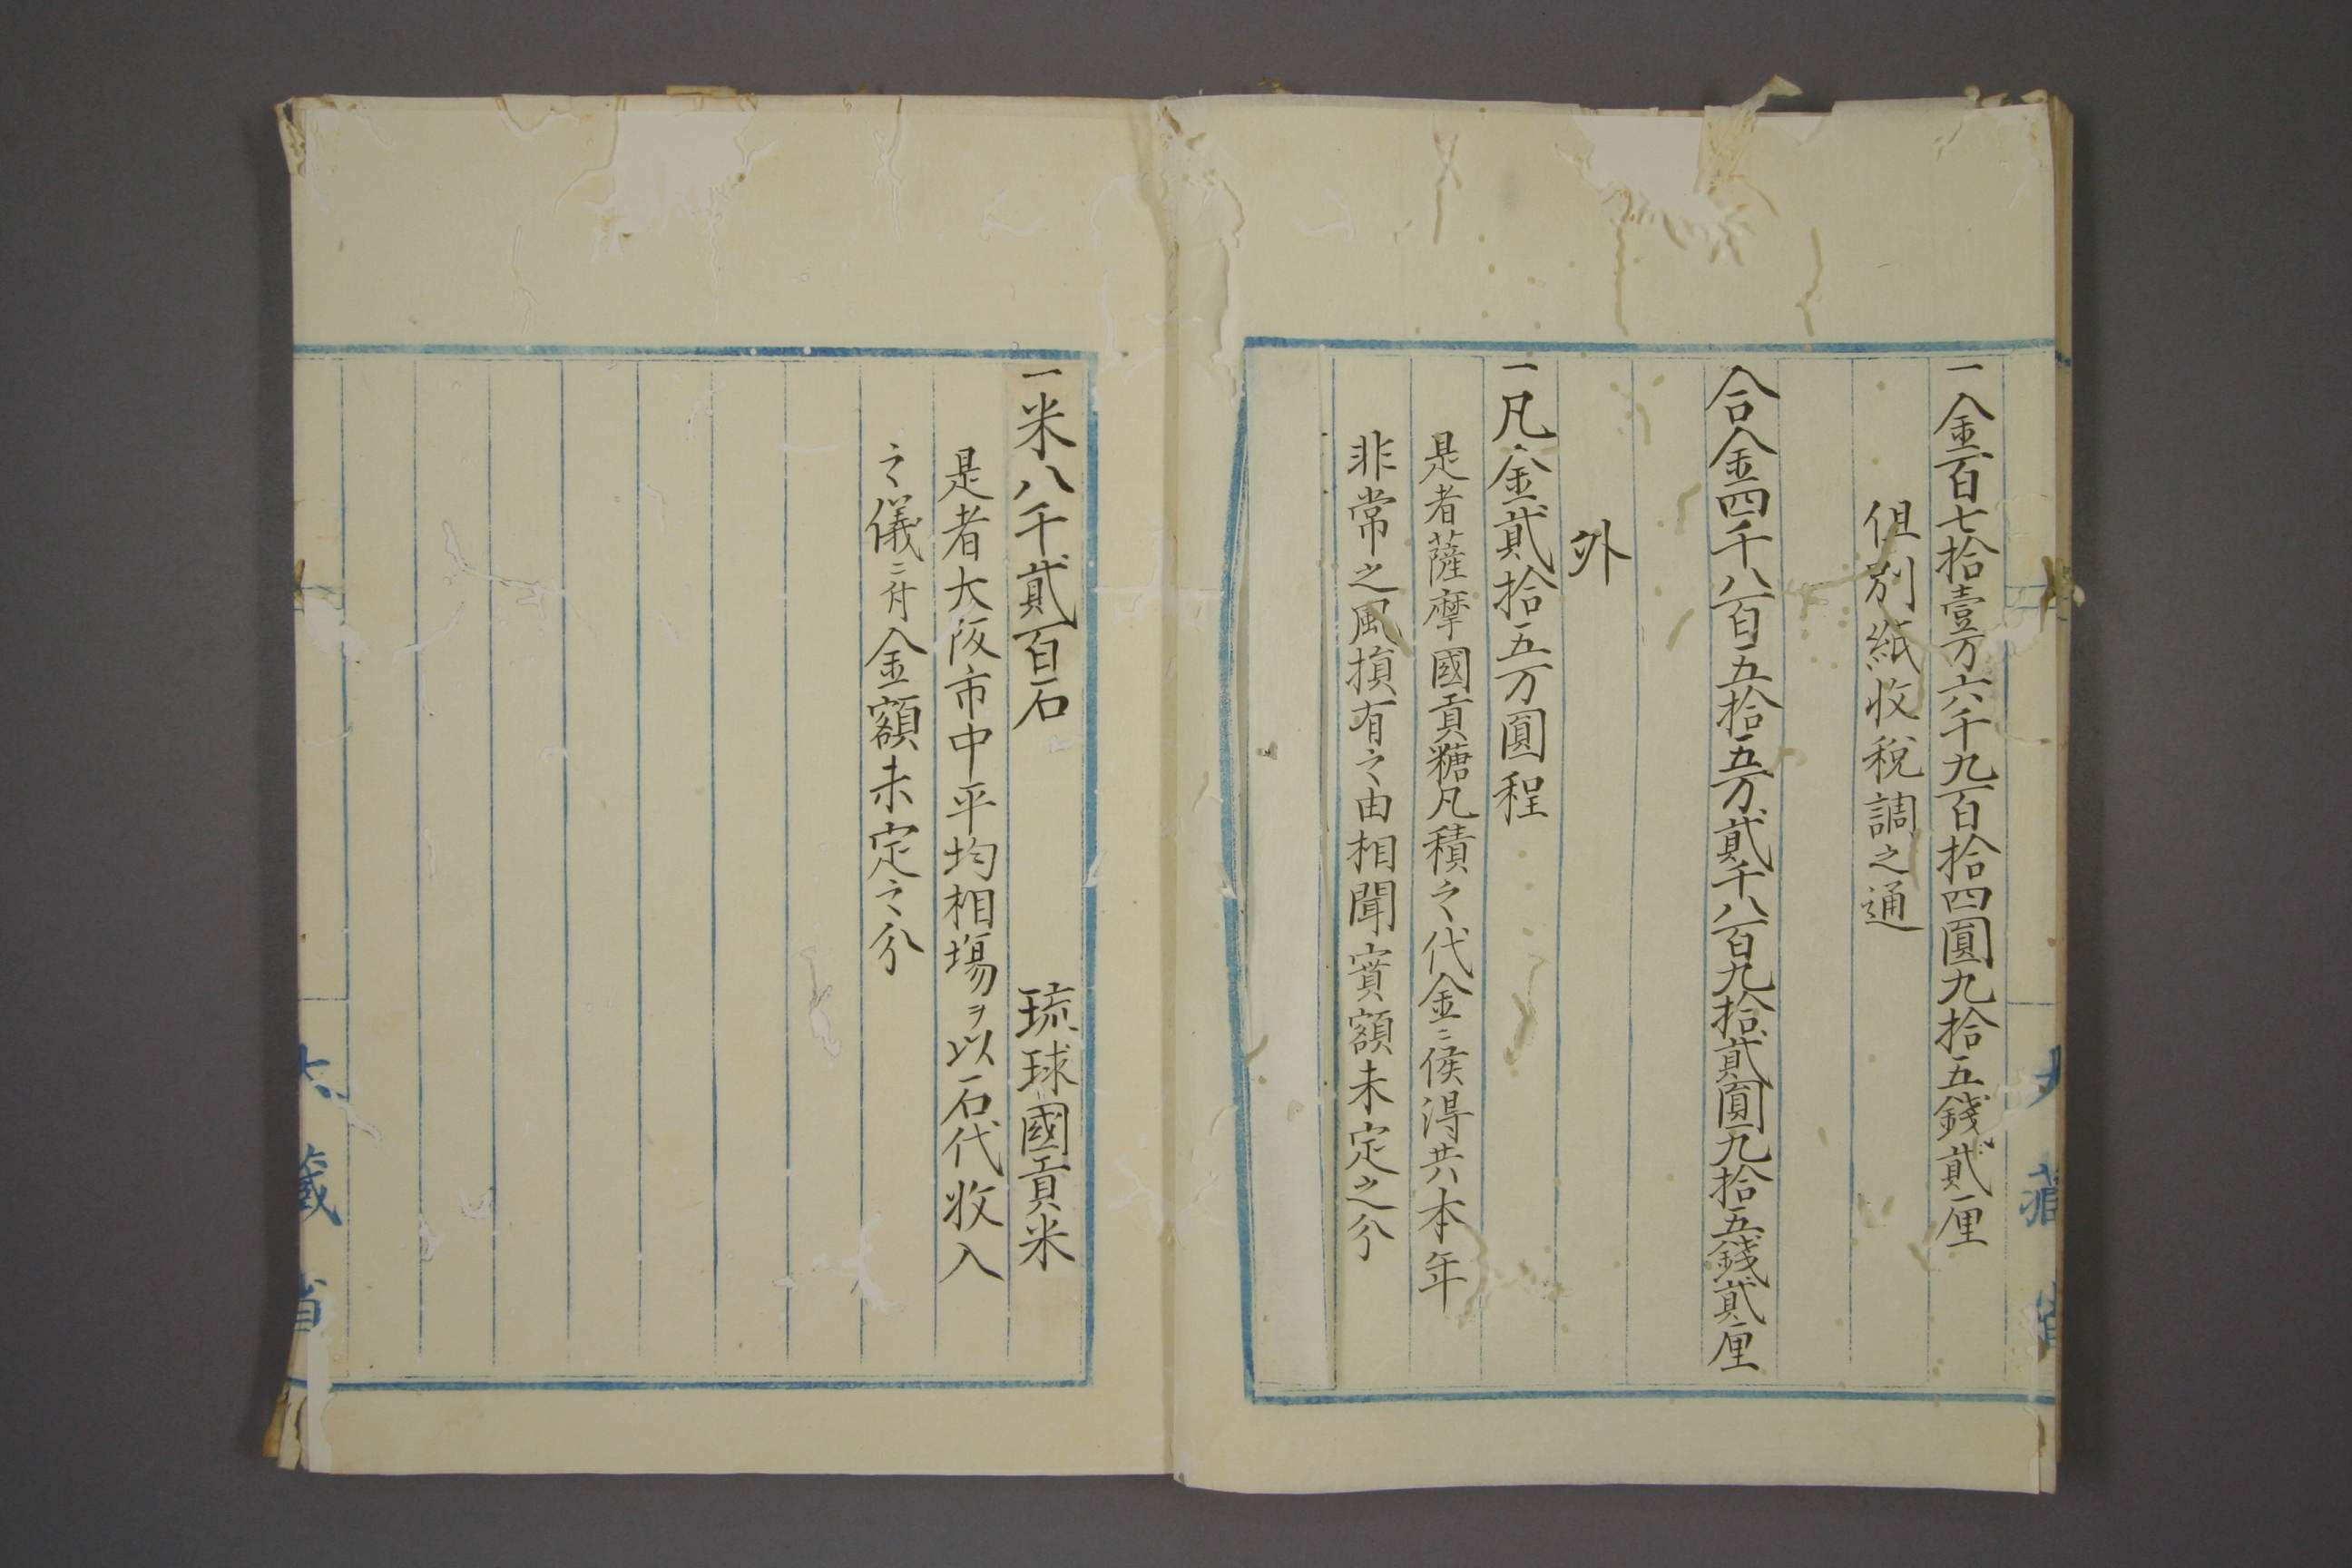 一金百七拾壹万六千九百拾四圓九拾五錢貳厘
但別紙收税調之通
合金四千八百五拾五万貳千八百九拾貳圓九拾五錢貳厘
外
一凡金貳拾五万圓程
是者薩摩國貢糖凡積之代金ニ候得共本年
非常之風損有之由相聞實額未定之分
一米八千貳百石 琉球國貢米
是者大阪市中平均相場ヲ以石代收入
之儀ニ付金額未定之分
大藏省